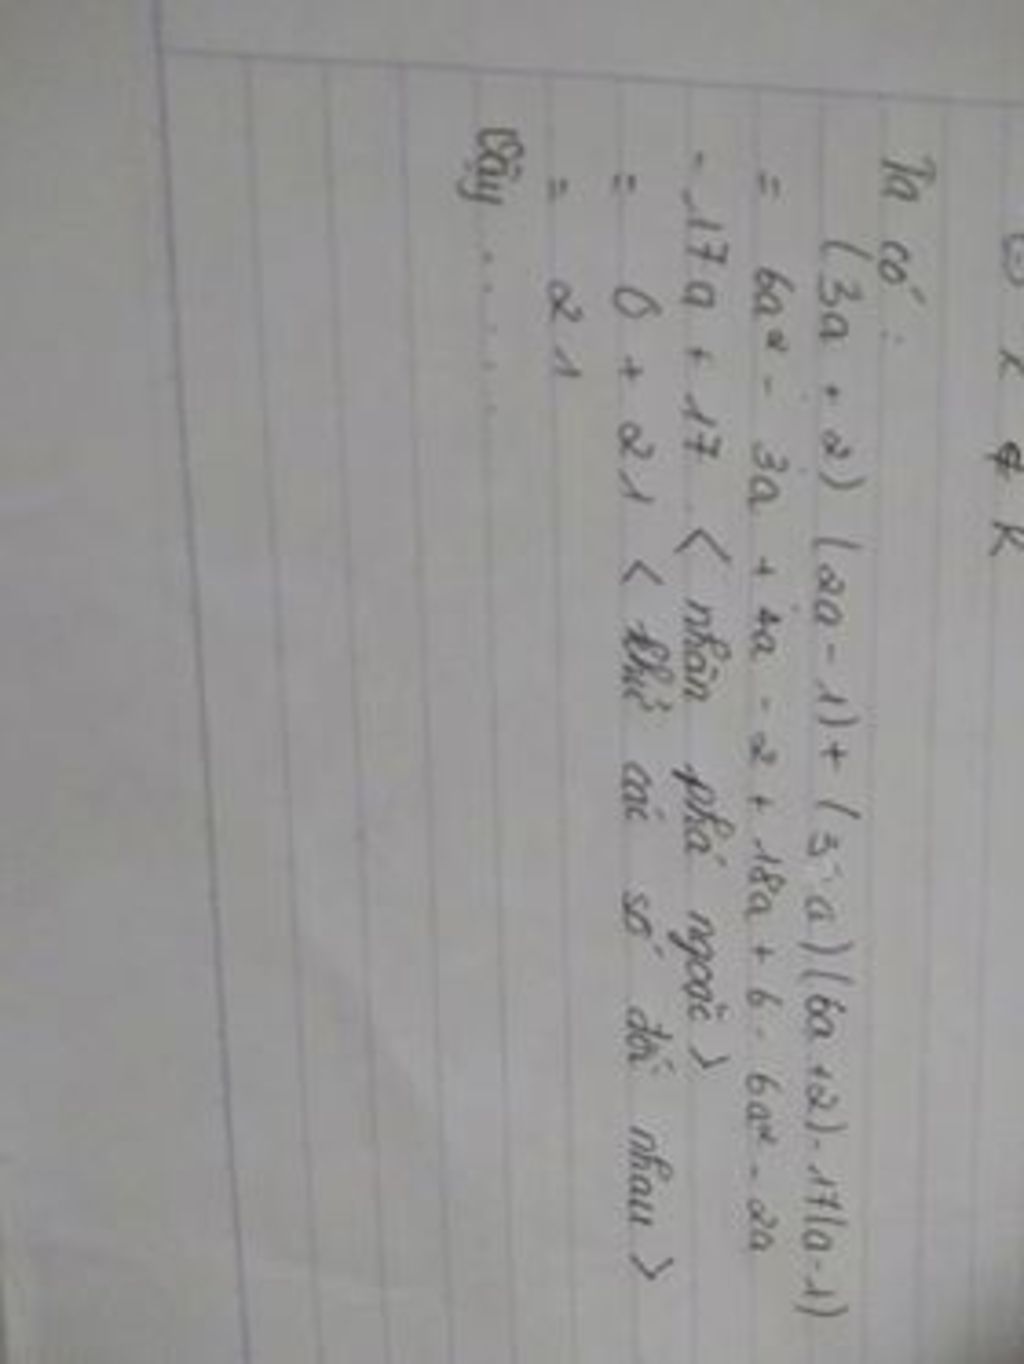 Ta có :
(3a + 2) (2a - 1) + (3 - a) (6a + 2) - 17(a - 1)
= 6a² - 3a + 4a - 2 + 18a + 6 - 6a² - 2a
- 17a + 17 < nhân phá ngoặc >
= 0 + 21 < khử các số đối nhau >
= 21
Vậy . . . . .